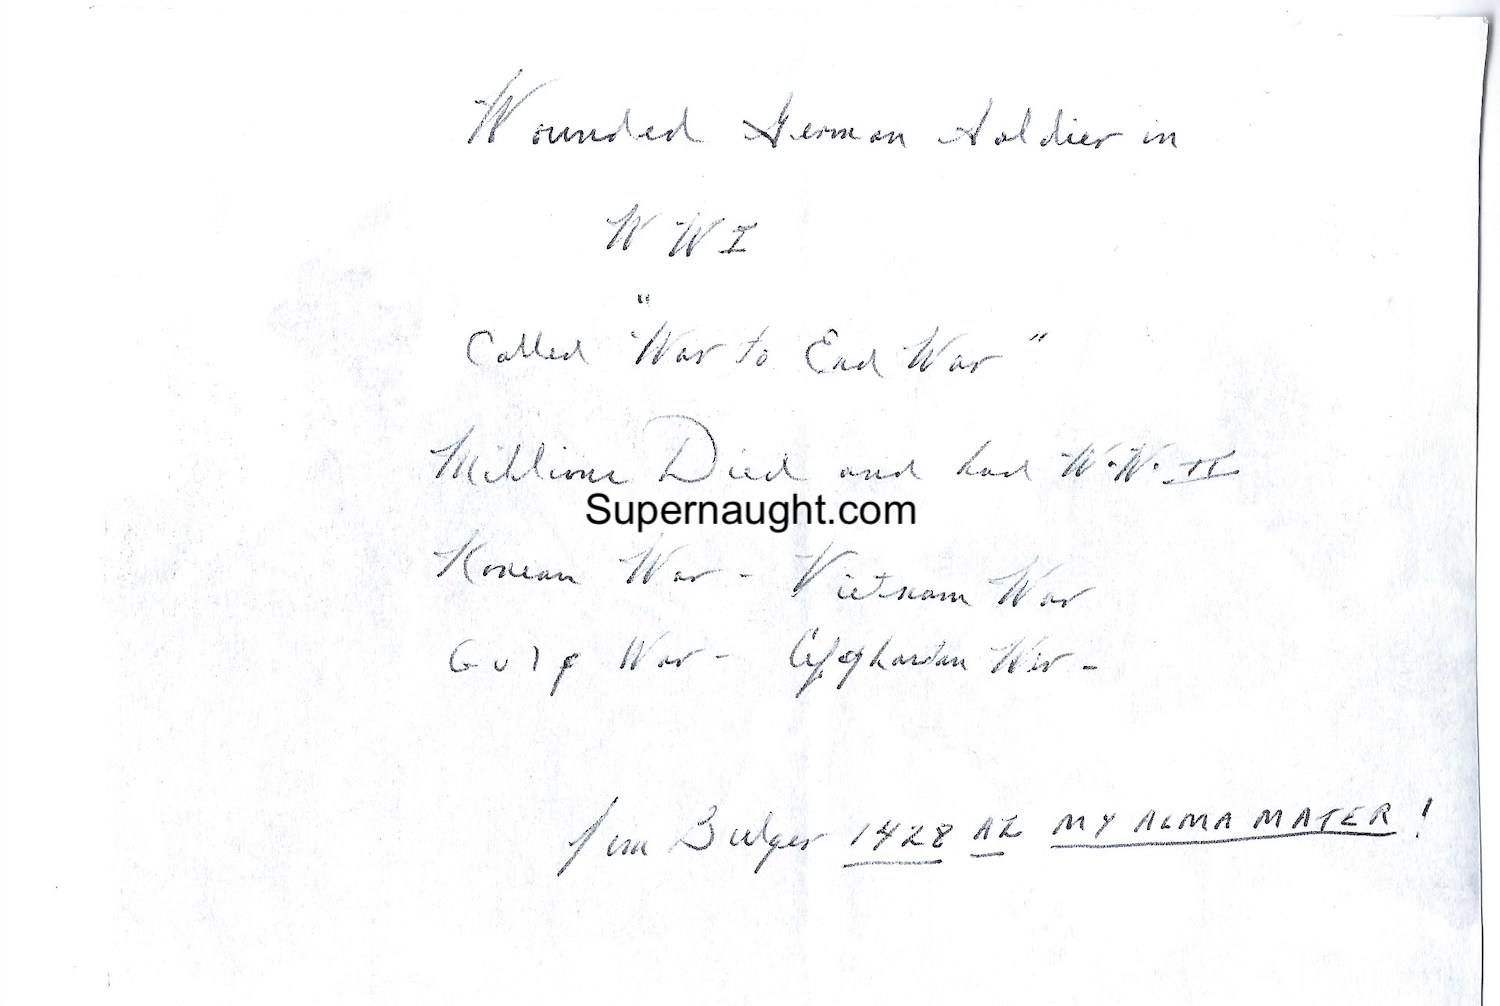 Wounded German Soldier in
WWI
"
Called "War to End War"
Millions Died and had W.W. II
Supernaught.com
Korean War - Vietnam War
Gulf War - Afghanistan War -
Jim Bulger 1428 AZ MY ALMA MATER!